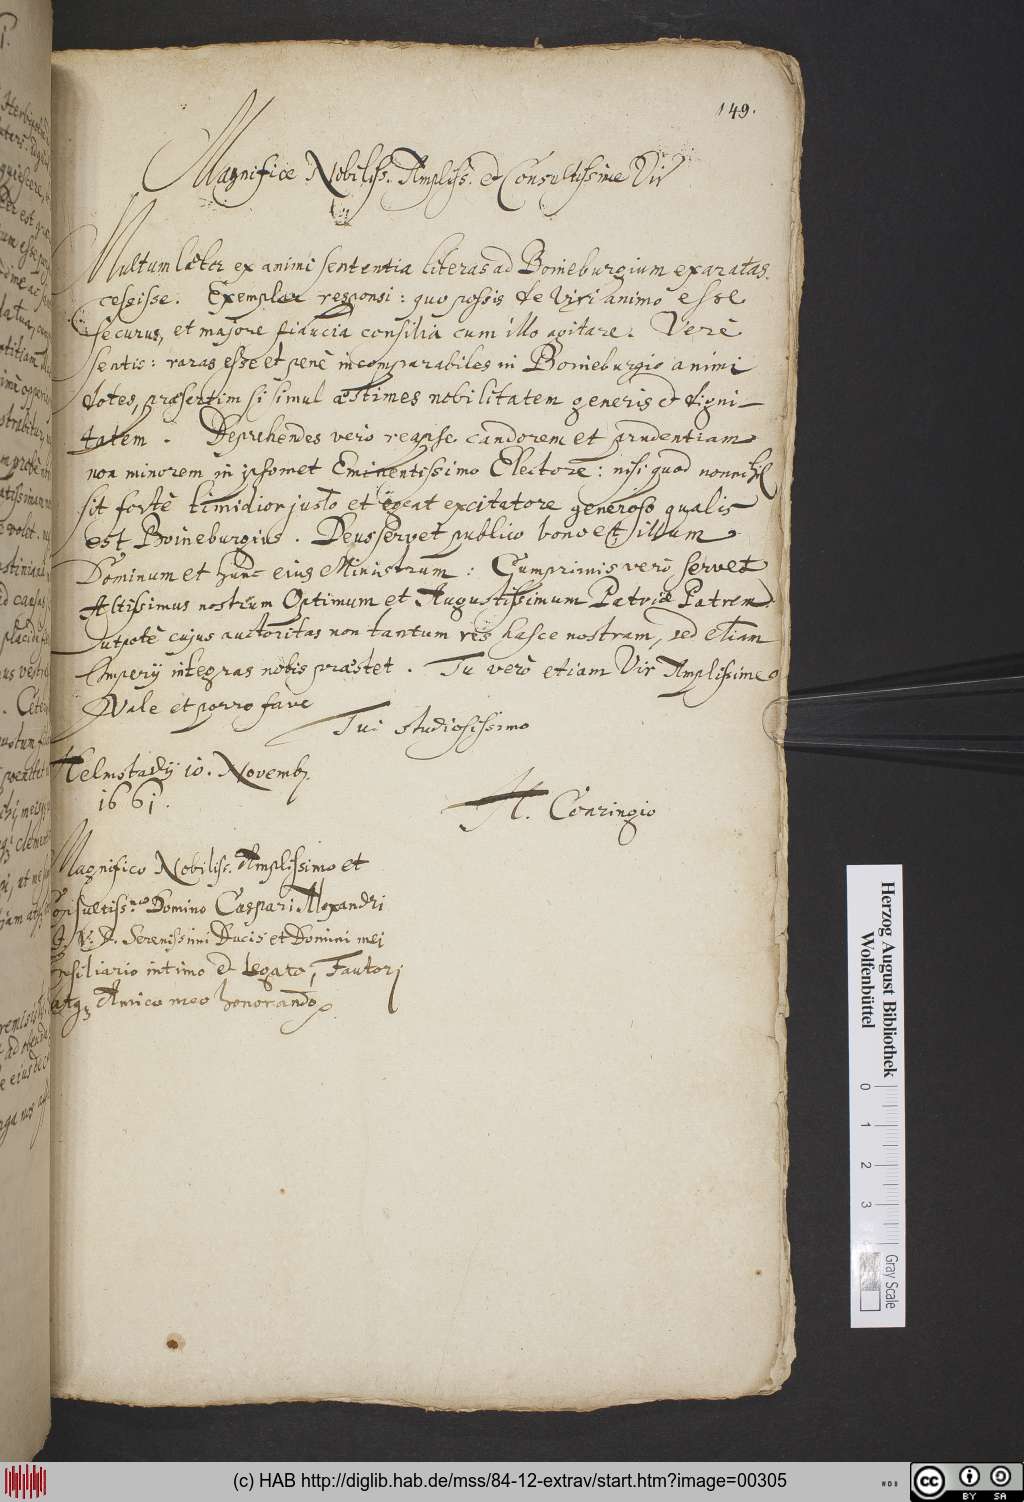 149.
Magnifice Nobiliss. Ampliss. et Consultissime Vir
Multum lætor ex animi sententia literas ad Boineburgium exaratas
cessisse. Exemplar responsi: quo possis de Viri animo esse
securus, et majore fiducia consilia cum illo agitare. Verè
sentis: raras esse et penè incomparabiles in Boineburgio animi
dotes, præsertim si simul æstimes nobilitatem generis et digni-
tatem. Deprehendes vero reapse candorem et prudentiam
non minorem in ipsomet Eminentissimo Electore: nisi quod nonnihil
sit fortè timidior justo et egeat excitatore generoso qualis
est Boineburgius. Deus servet publico bono et illum
Dominum et hunc eius Ministrum: Cumprimis verò servet
Altissimus nostrum Optimum et Augustissimum Patriæ Patrem
utpotè cujus auctoritas non tantum res hasce nostram, sed etiam
Imperij integras nobis præstet. Tu verò etiam Vir Amplissime
Vale et porro fave
Tui studiosissimo
Helmstadij 10. Novemb.
1661.
H. Conringio
Magnifico Nobiliss. Amplissimo et
Consultiss.mo Domino Caspari Alexandri
J. V. D. Serenissimi Ducis et Domini mei
Consiliario intimo et legato, Fautori
atq; Amico meo honorando
Herzog August Bibliothek
Wolfenbüttel
0
1
2
3
Gray Scale
(c) HAB http://diglib.hab.de/mss/84-12-extrav/start.htm?image=00305
cc
BY SA